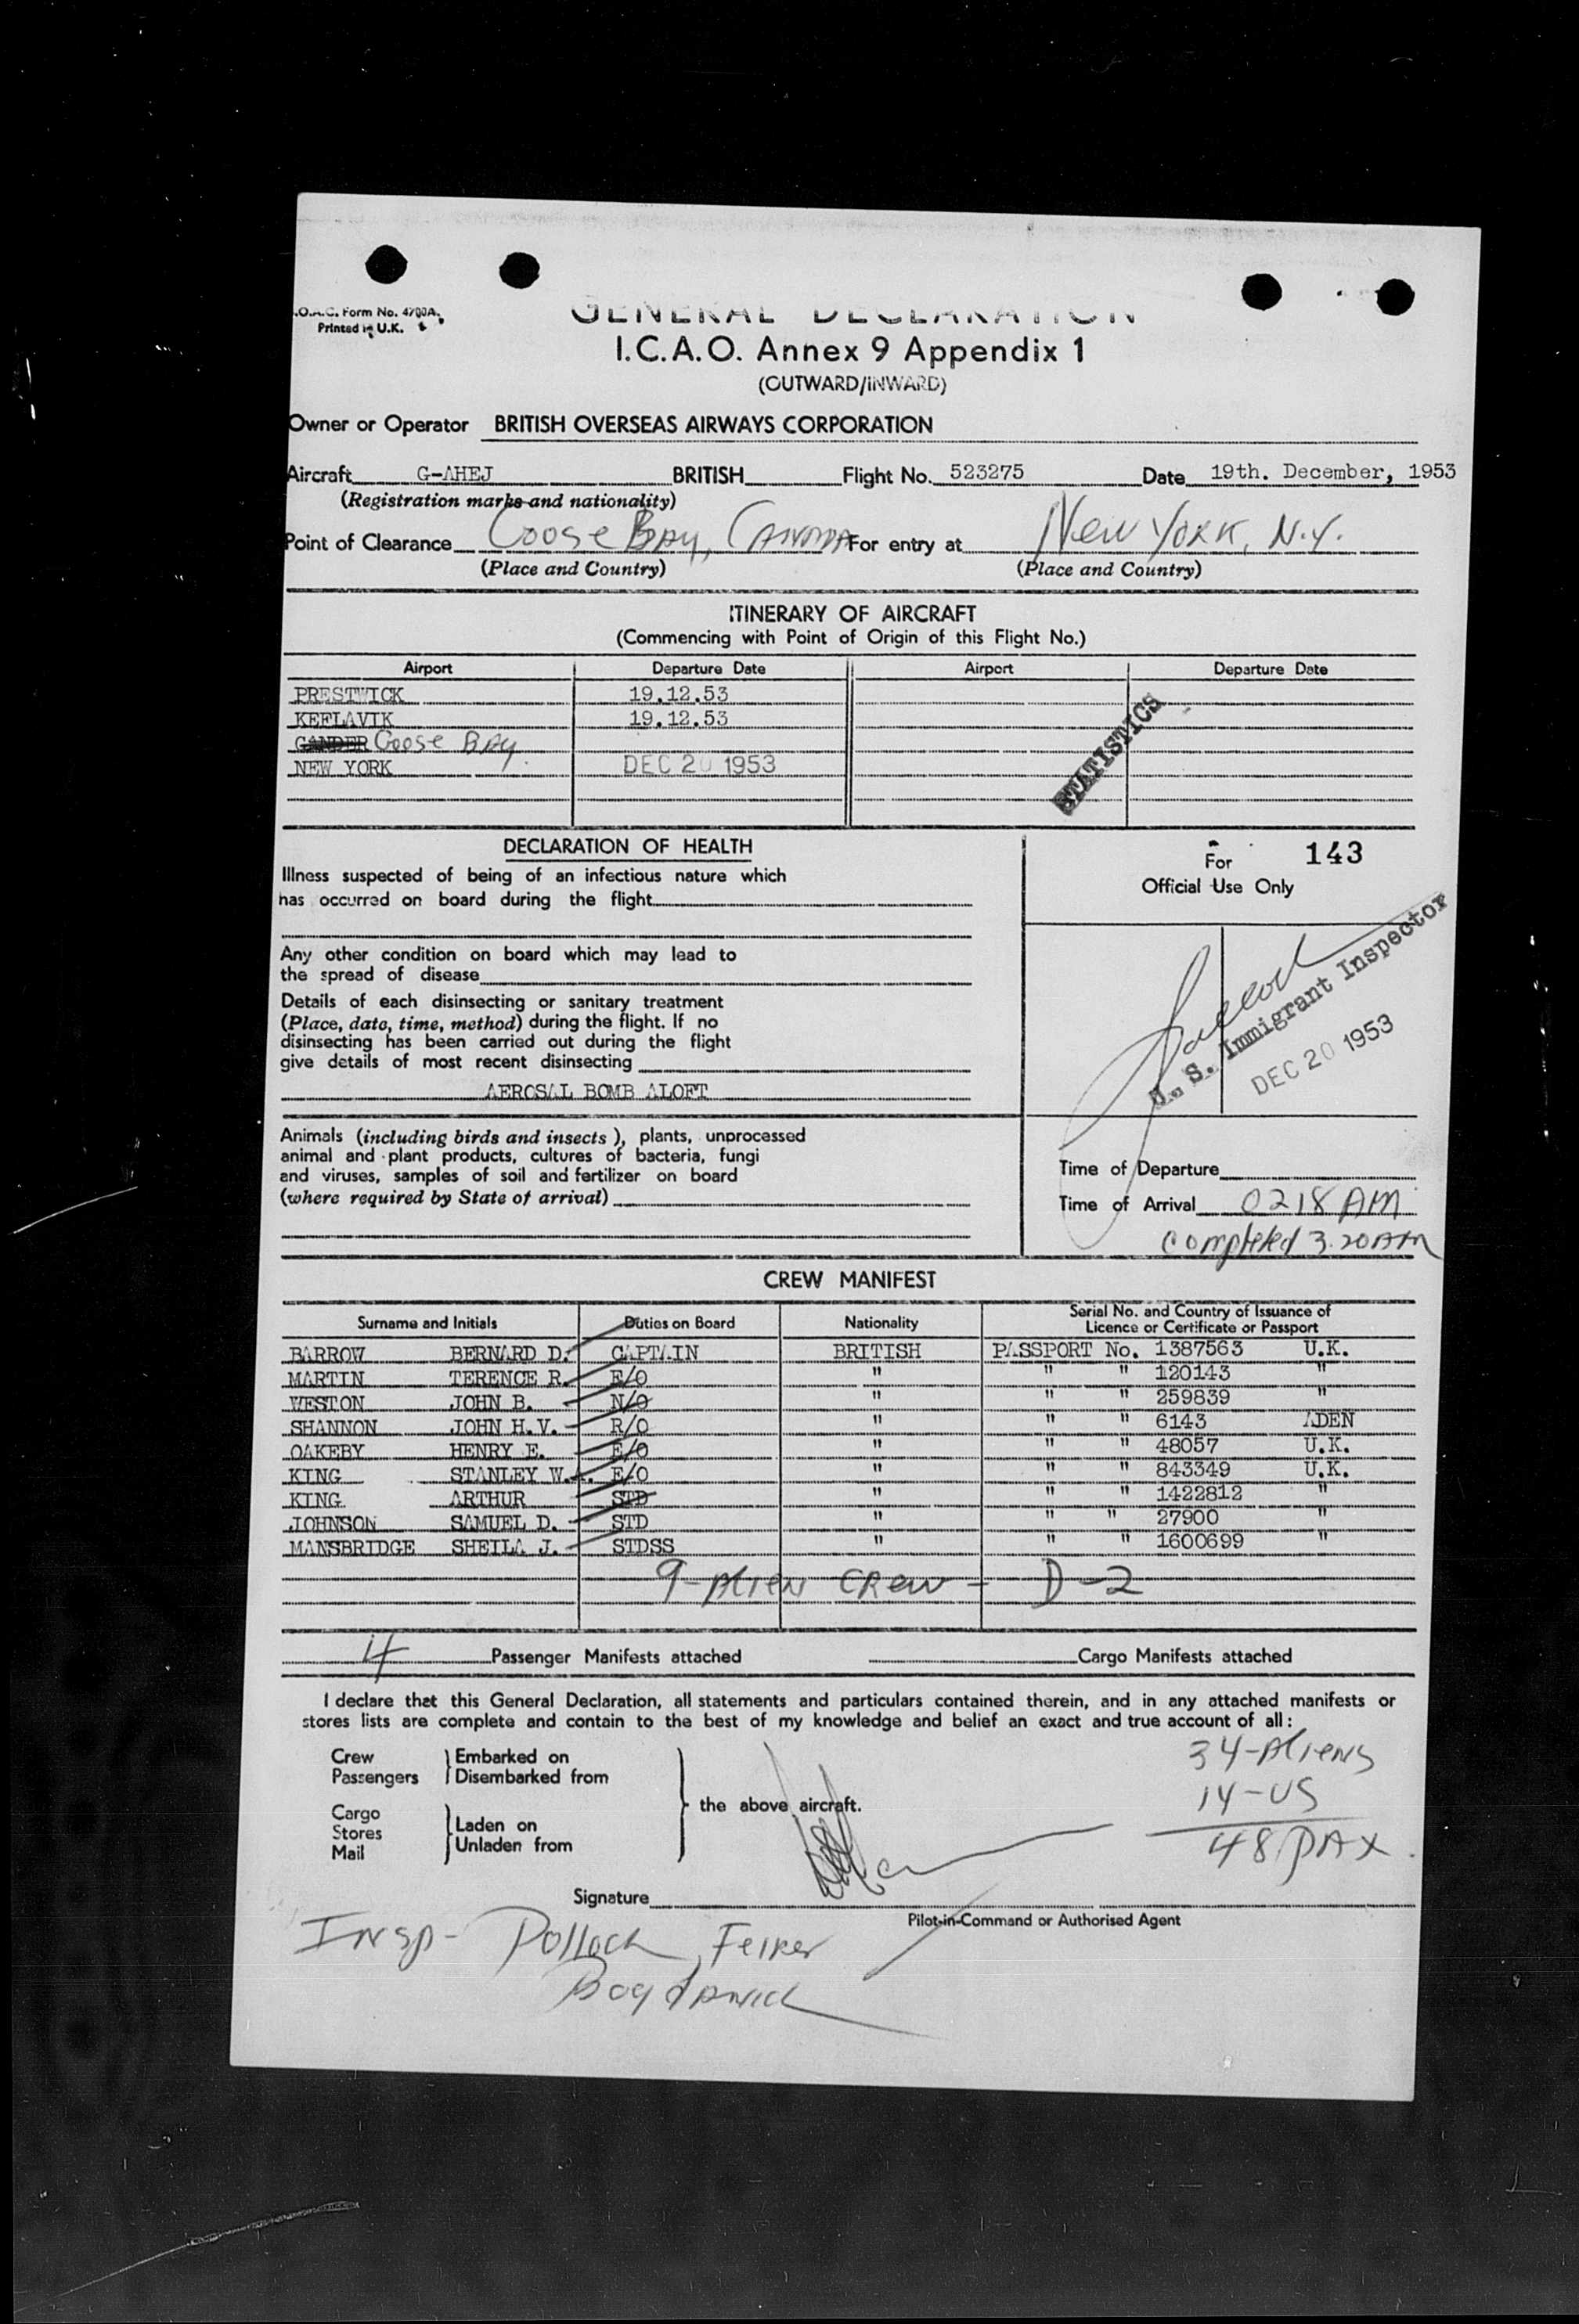 .O.A.C. Form No. 4700A.
Printed in U.K.
GENERAL DECLARATION
I.C.A.O. Annex 9 Appendix 1
(OUTWARD/INWARD)
Owner or Operator BRITISH OVERSEAS AIRWAYS CORPORATION
Aircraft G-AHEJ BRITISH Flight No. 523275 Date 19th. December, 1953
(Registration marks and nationality)
Point of Clearance Goose Bay, Canada For entry at New York, N.Y.
(Place and Country) (Place and Country)
ITINERARY OF AIRCRAFT
(Commencing with Point of Origin of this Flight No.)
Airport Departure Date Airport Departure Date
PRESTWICK 19.12.53
KEFLAVIK 19.12.53
GANDER Goose Bay
NEW YORK DEC 20 1953
STATISTICS
DECLARATION OF HEALTH
Illness suspected of being of an infectious nature which
has occurred on board during the flight
Any other condition on board which may lead to
the spread of disease
Details of each disinsecting or sanitary treatment
(Place, date, time, method) during the flight. If no
disinsecting has been carried out during the flight
give details of most recent disinsecting
AEROSAL BOMB ALOFT
Animals (including birds and insects), plants, unprocessed
animal and plant products, cultures of bacteria, fungi
and viruses, samples of soil and fertilizer on board
(where required by State of arrival)
For 143
Official Use Only
U. S. Immigrant Inspector
DEC 20 1953
Time of Departure
Time of Arrival 0218 AM
Completed 3.20 AM
CREW MANIFEST
Surname and Initials Duties on Board Nationality Serial No. and Country of Issuance of
Licence or Certificate or Passport
BARROW BERNARD D. CAPTAIN BRITISH PASSPORT No. 1387563 U.K.
MARTIN TERENCE R. F/O " " " 120143 "
WESTON JOHN B. N/O " " " 259839 "
SHANNON JOHN H.V. R/O " " " 6143 ADEN
OAKEBY HENRY E. E/O " " " 48057 U.K.
KING STANLEY W. E/O " " " 843349 U.K.
KING ARTHUR STD " " " 1422812 "
JOHNSON SAMUEL D. STD " " " 27900 "
MANSBRIDGE SHEILA J. STDSS " " " 1600699 "
9-Alien Crew - D-2
4 Passenger Manifests attached Cargo Manifests attached
I declare that this General Declaration, all statements and particulars contained therein, and in any attached manifests or
stores lists are complete and contain to the best of my knowledge and belief an exact and true account of all:
Crew Embarked on
Passengers Disembarked from
the above aircraft.
Cargo Laden on
Stores Unladen from
Mail
34-Aliens
14-US
48 PAX
Signature
Pilot-in-Command or Authorised Agent
Insp- Pollock, Felker